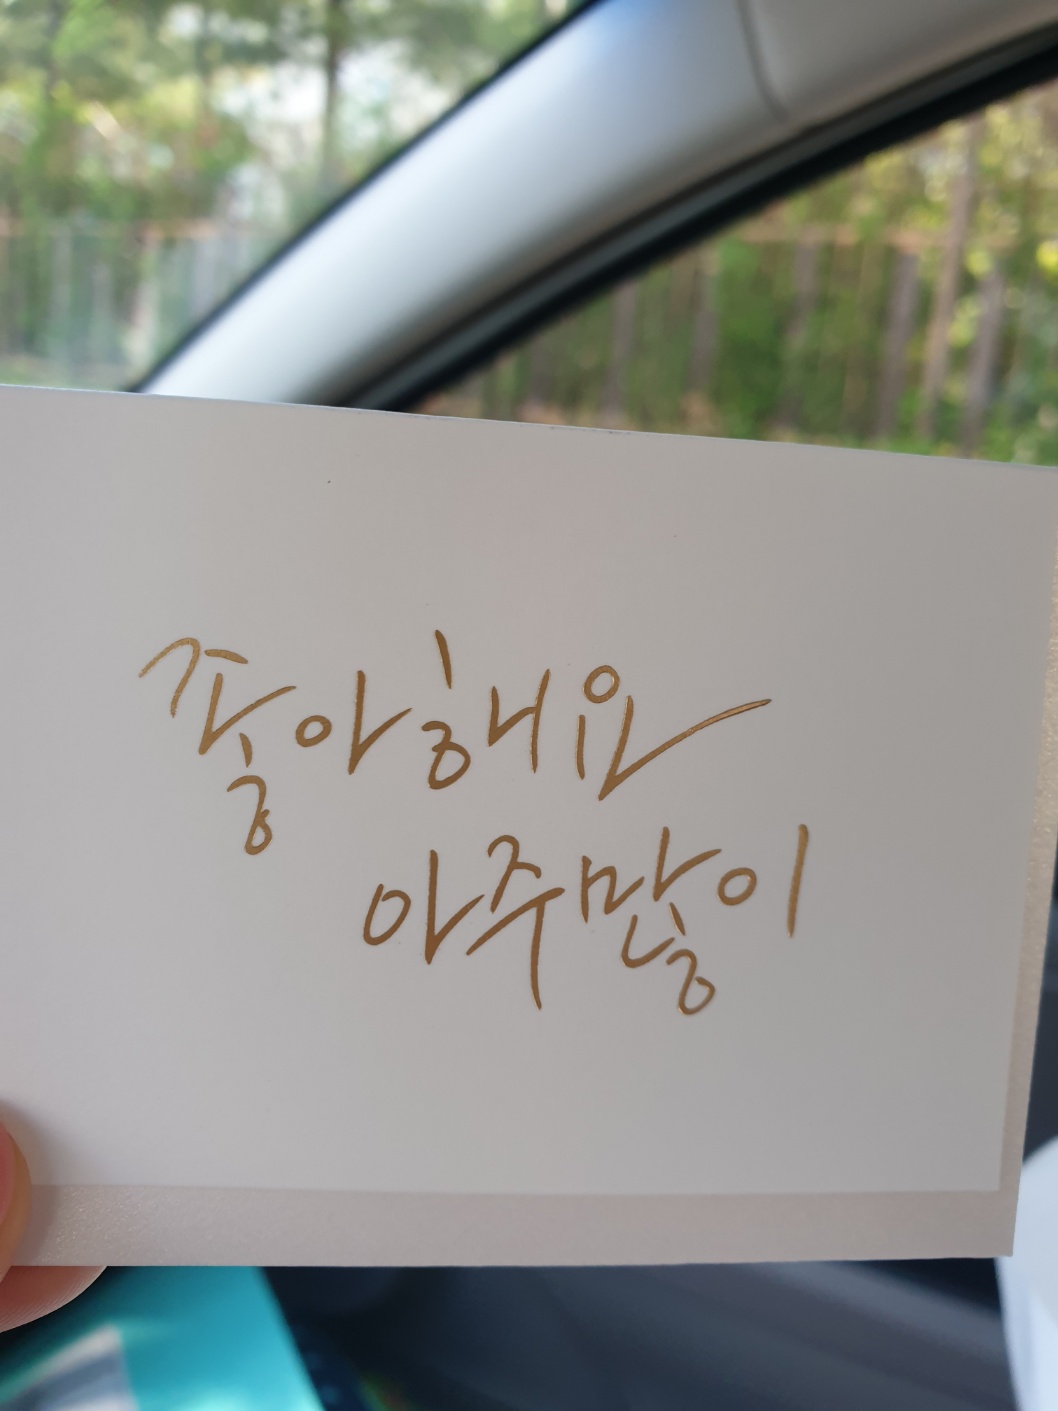 좋아해요
아주많이